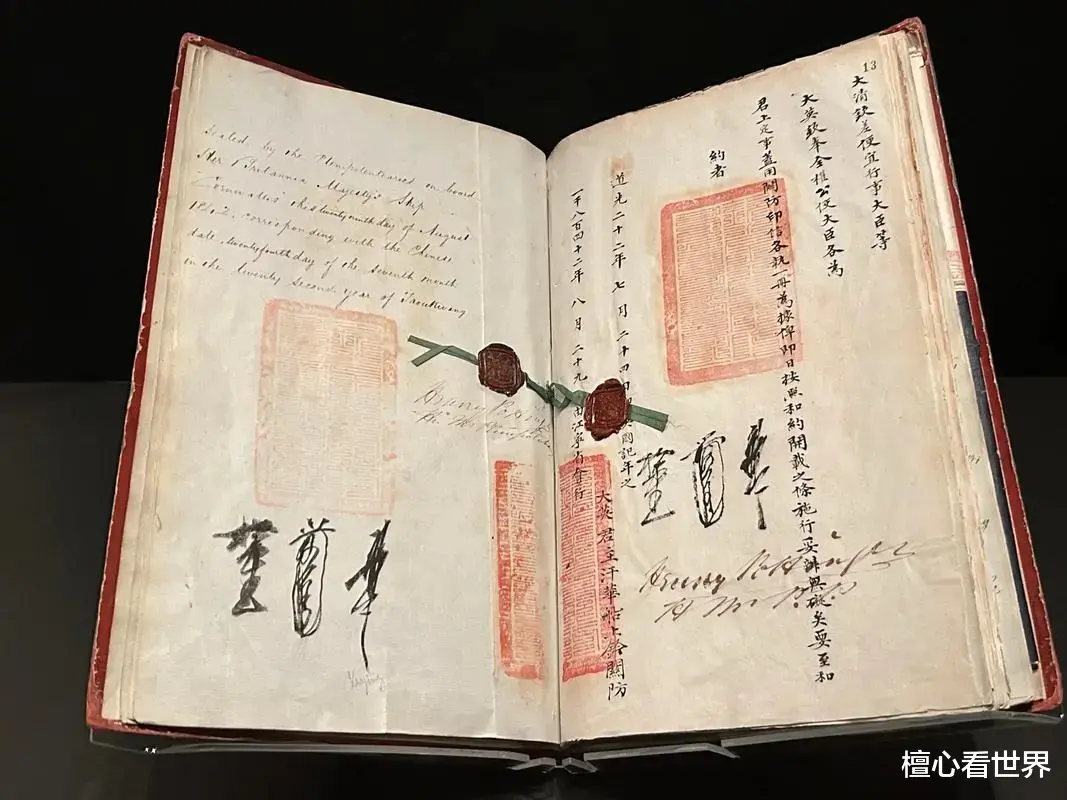 Sealed by the Plenipotentiaries on board
Her Britannic Majesty's Ship
Cornwallis this twenty ninth day of August
1842, corresponding with the Chinese
date, twenty fourth day of the seventh month
in the twenty second year of Taoukwang
Henry Pottinger
13
大清欽差便宜行事大臣等
大英欽奉全權公使大臣各為
君上定事蓋用關防印信各執一冊為據俾即日按照和約開載之條施行妥辦無礙矣要至和
約者
道光二十二年七月二十四日即英國記年之
一千八百四十二年八月二十九日由江寧省會行
大英君主汗華船上鈐關防
Henry Pottinger
檀心看世界